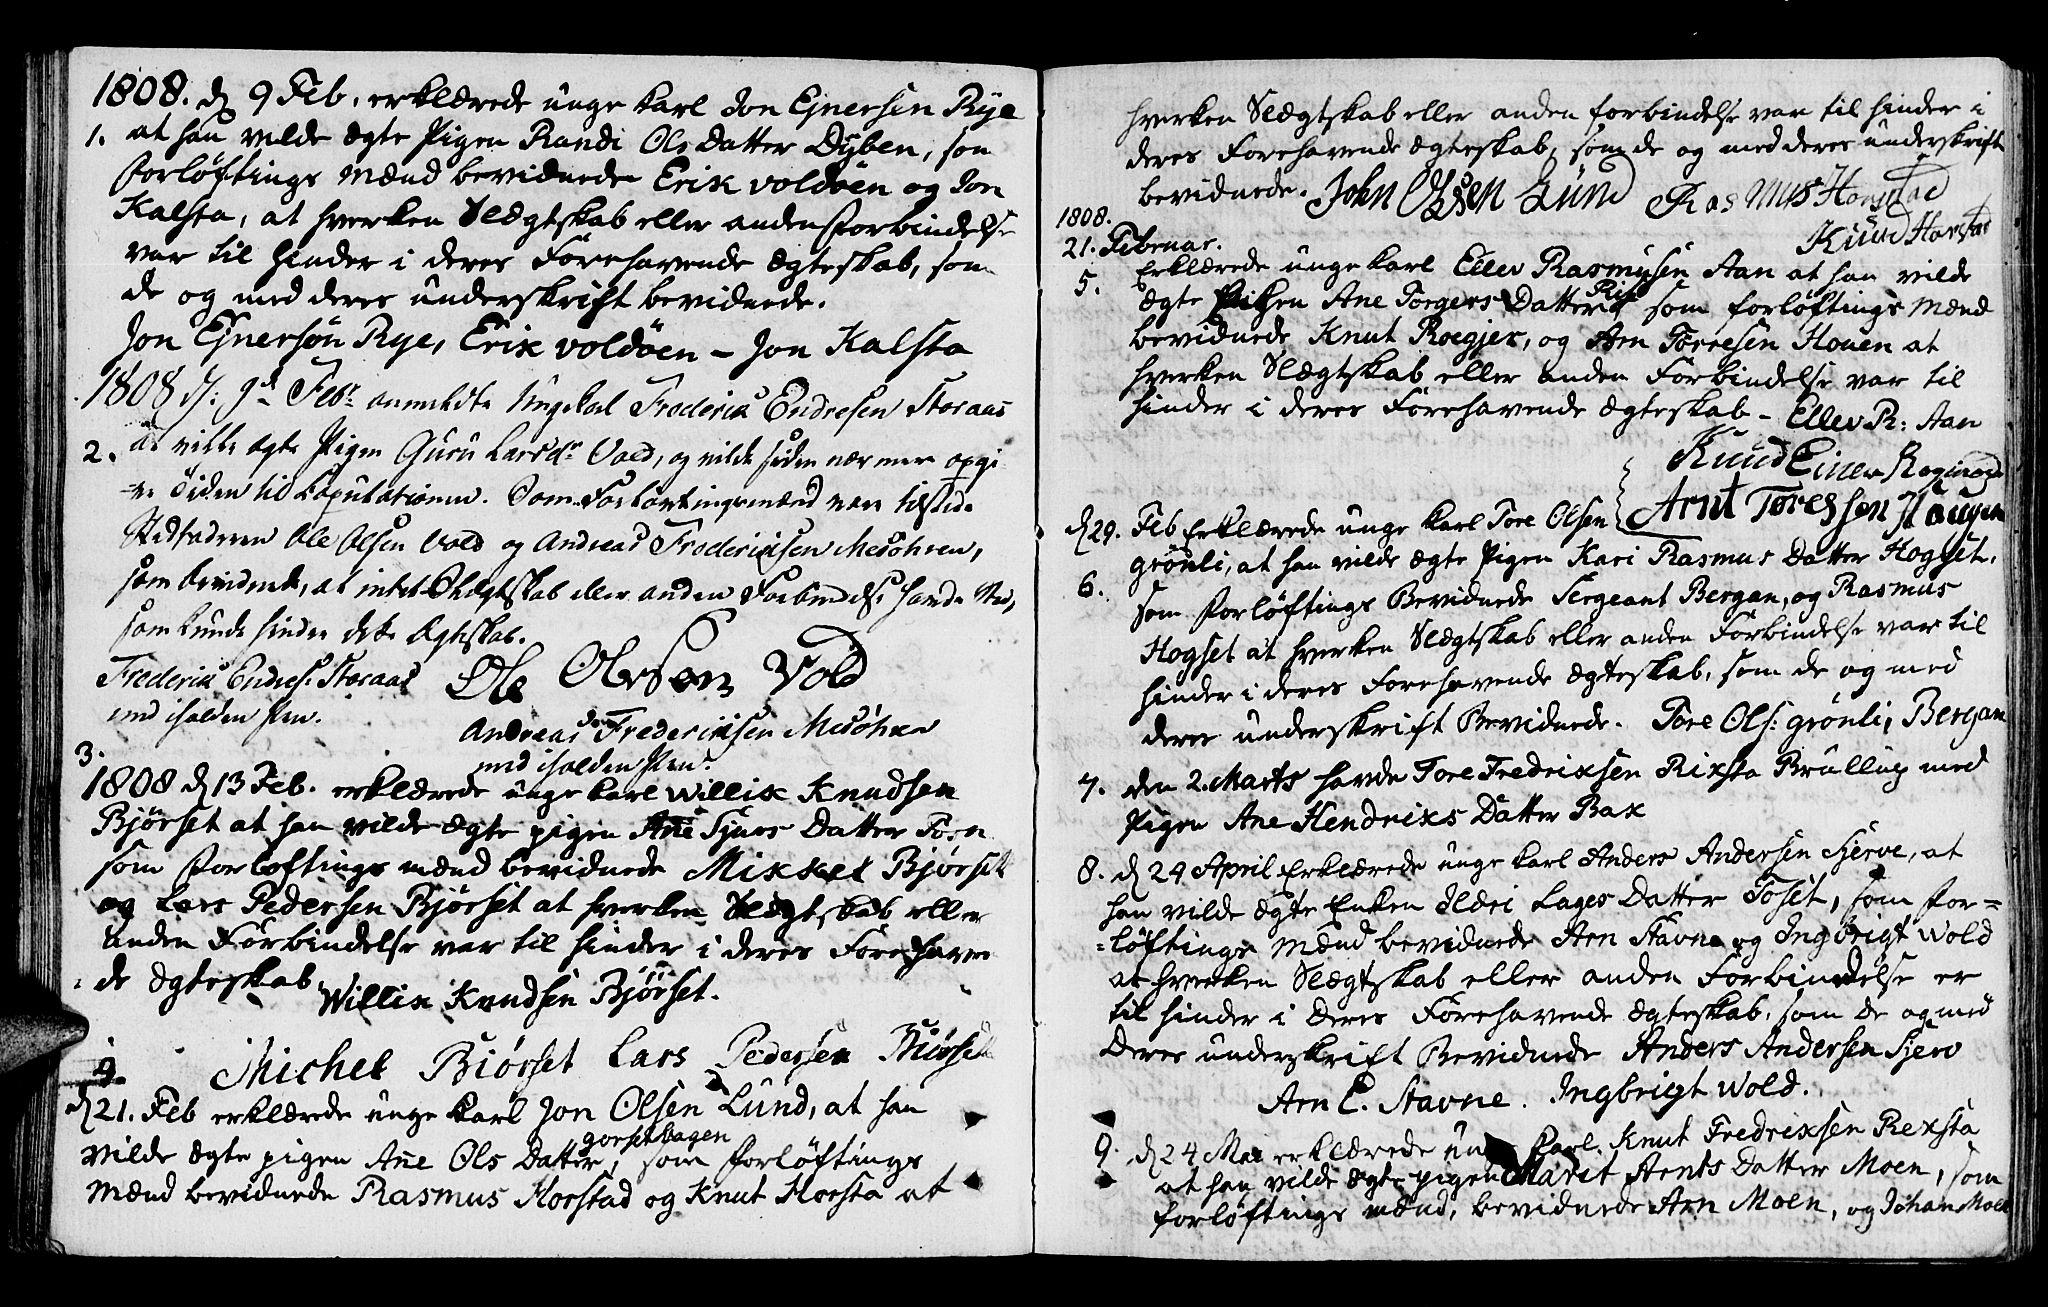 1808. d 9 Feb. erklærede unge Karl Jon Ejnersen Rye
1. at han vilde ægte Pigen Randi OlsDatter Dyben, som
forløftings Mænd bevidnede Erik voldøen og Jon
Kalsta, at hverken Slægtskab eller anden forbindelse
var til Hinder i deres Forehavende Ægteskab, som
de og med deres underskrift bevidnede.
Jon Ejnersøn Rye, Erik voldøen - Jon Kalsta
1808 d: 9d Febr anmeldte Ungekarl Frederik Endresen Storaas
2. at ville ægte Pigen Guru Larsdr Vold, og vilde siden nærmere opgi-
=ve Tiden til Copulationen. Som Forlovtingsmænd vare tilstede
Stedfaderen Ole Olsen Vold og Andreas Frederiksen Mesøhren,
som bevidnede, at intet Slægtskab eller anden Forbindelse havde Sted,
som kunde hindre dette Ægteskab.
Frederik Endres. Storaas Ole Olesen Vold
med iholden Pen.
Andreas Frederiksen Mesøhren
med iholden Pen.
3.
1808 d 13 Feb. erklærede unge Karl Willik Knudsen
Bjørset at han vilde ægte pigen Ane Sjurs Datter
som forløftings mænd bevidnede Mikkel Bjørset
og Lars Pedersen Bjørset at hverken Slægtskab eller
anden Forbindelse var til hinder i deres Forehaven
de Ægteskab. Willik Knudsen Bjørset.
Michel Biørset Lars Pedersen Biørset
4.
d 21. Feb erklærede unge Karl Jon Olsen Lund, at han
vilde ægte pigen Ane Ols Datter gorsethagen, som forløftings
Mænd bevidnede Rasmus Horstad og Knut Horsta at
hverken Slægtskab eller anden forbindelse var til hinder i
deres Forehavende Ægteskab, som de og med deres underskrift
bevidnede. John Olsen Lund Rasmus Horstad
1808. Knud Horstad
21. Februar.
5. Erklærede unge Karl Ellev Rasmusen Aan at han vilde
ægte Pigen Ane Torgers Datter som forløftings Mænd
bevidnede Knut Roegjer, og Arn Torresen Houen at
hverken Slægtskab eller anden Forbindelse var til
hinder i deres Forehavende Ægteskab - Ellev R: Aan
Knud Einer
Arnt Toressen Hougen
d 29. Feb Erklærede unge Karl Tore Olsen
grønli, at han vilde ægte Pigen Kari Rasmus Datter Hogset,
6. som forløftings Bevidnede Sergeant Bergan, og Rasmus
Hogset at hverken Slægtskab eller anden Forbindelse var til
hinder i deres Forehavende Ægteskab, som de og med
deres underskrift Bevidnede. Tore Ols: grønli, Bergan
7. den 2. Marts havde Tore Fredriksen Riksta Brullup med
Pigen Ane Hendriks Datter Bak
8. d 24 April Erklærede unge Karl Anders Andersen Sjerve, at
han vilde ægte Enken Ildri Lages Datter Toset, som for=
=løftings Mænd bevidnede Arn Stavne og Ingbrigt Wold
at hverken Slægtskab eller anden Forbindelse er
til hinder i Deres Forehavende Ægteskab, som de og med
Deres underskrift Bevidnede Anders Andersen Sjerv
Arn E. Stavne. Ingbrigt Wold.
9. d 24 Mai erklærede unge Karl Knut Fredriksen Reksta
at han vilde ægte pigen Marit Arnts Datter Moen, som
forløftings mænd, bevidnede Arn Moen, og Johan Moen